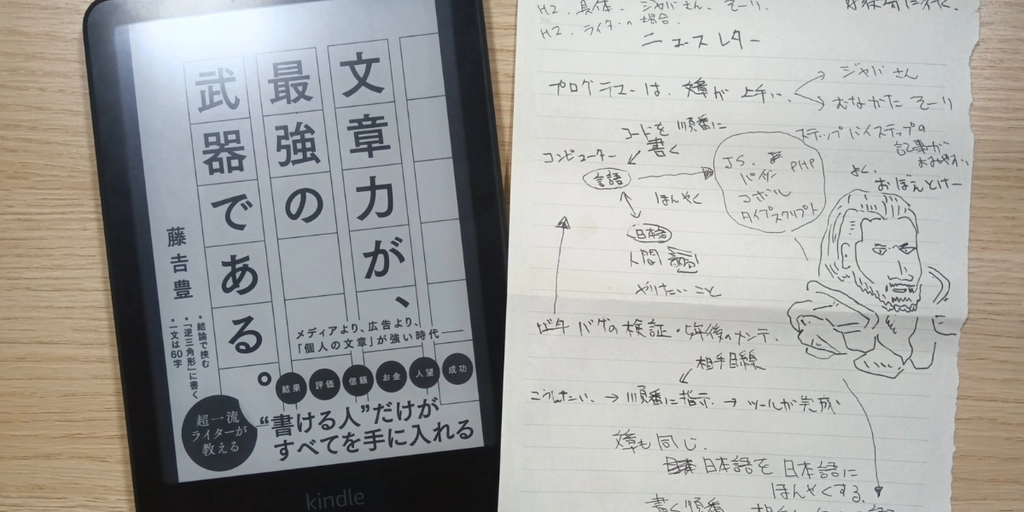 文章力が、
最強の
武器である。
藤𠮷豊
・結論で挟む
・「逆三角形」に書く
・一文は60字
メディアより、広告より、
「個人の文章」が強い時代
結果
評価
信頼
お金
人望
成功
超一流
ライターが
教える
“書ける人”だけが
すべてを手に入れる
kindle
H2. 具体. ジャバさん.
H2. ライターの場合.
ニュースレター
プログラマーは、文章が上手い、
ジャバさん
コードを順番に
書く
コンピューター
言語
JS.
PHP
パイソン
コボル
タイプスクリプト
ステップバイステップの
記事が
ほんやく
日本語
人間
やりたいこと
バグの検証・5年後のメンテ.
相手目線
こうしたい. → 順番に指示. → ツールが完成.
文章も同じ.
日本語を日本語に
ほんやくする.
書く順番